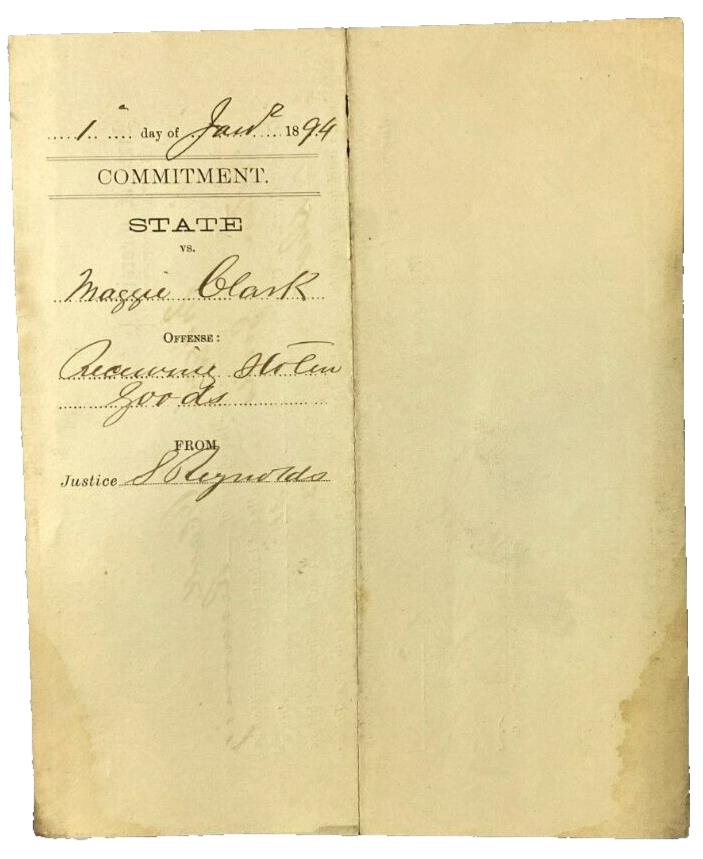 1st day of Jany 1894
COMMITMENT.
STATE
vs.
Maggie Clark
OFFENSE:
Receiving Stolen
goods
FROM
Justice S Reynolds